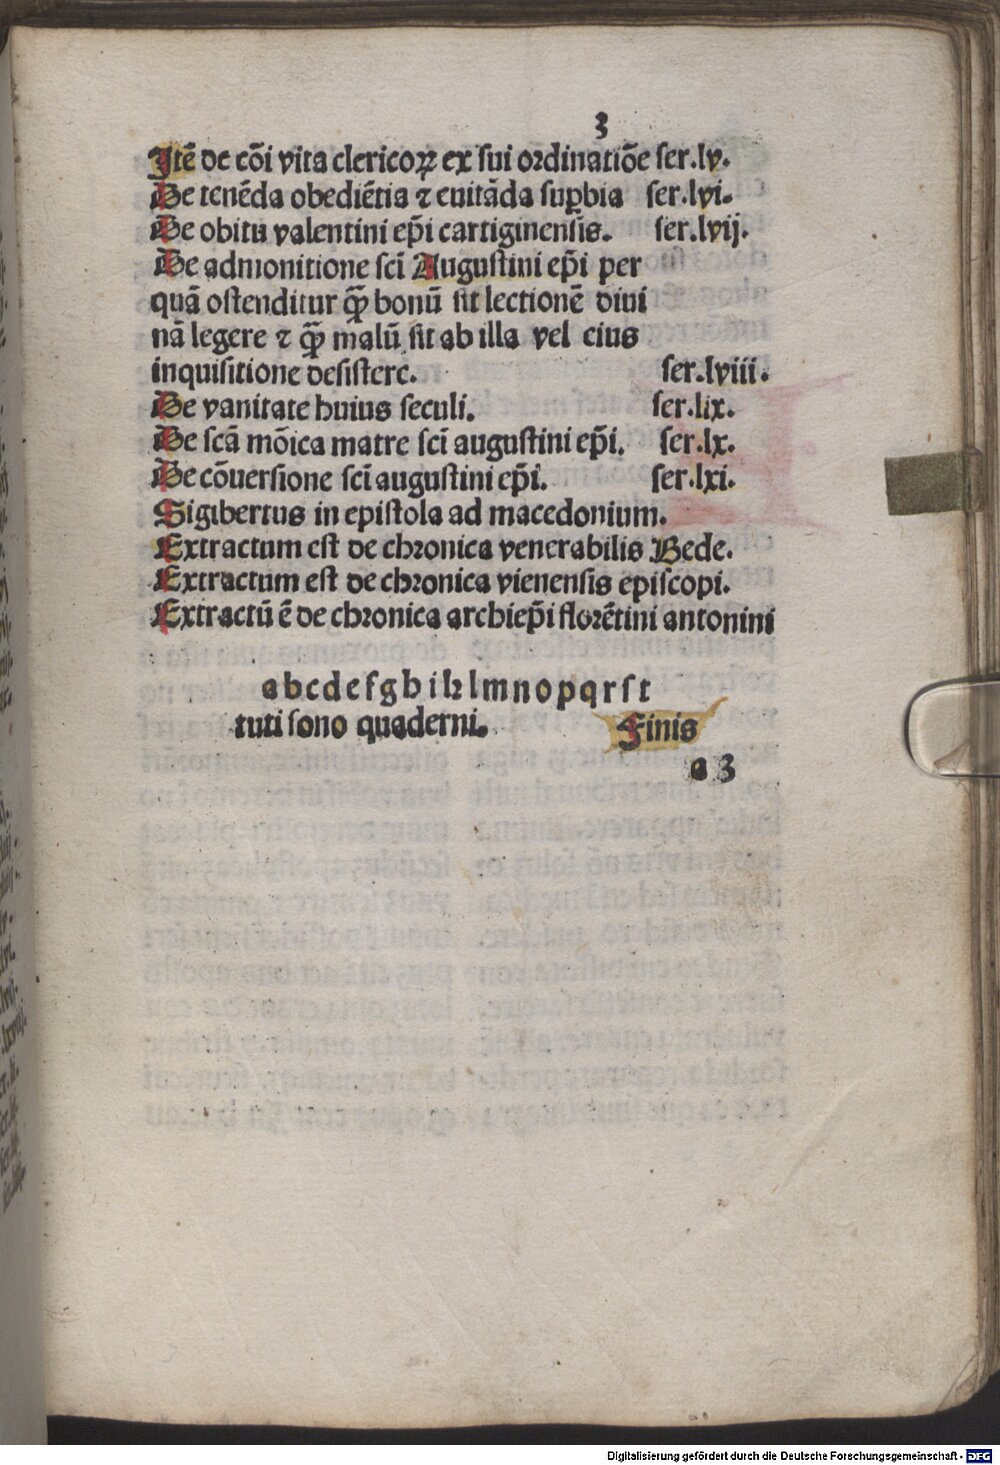 3
Itē de cōi vita clericoꝝ ex sui ordinatiōe ser.lv.
De tenēda obediētia ⁊ euitāda supbia ser.lvi.
De obitu valentini ep̄i cartiginensis. ser.lvij.
De admonitione sci̅ Augustini ep̄i per
quā ostenditur q̄ꝫ bonū sit lectionē diui
nā legere ⁊ q̄ꝫ malū sit ab illa vel eius
inquisitione desistere. ser.lviii.
De vanitate huius seculi. ser.lix.
De scā mōica matre sci̅ augustini ep̄i. ser.lx.
De cōuersione sci̅ augustini ep̄i. ser.lxi.
Sigibertus in epistola ad macedonium.
Extractum est de chronica venerabilis Bede.
Extractum est de chronica vienensis episcopi.
Extractū ē de chronica archiep̄i florētini antonini
a b c d e f g h i k l m n o p q r s t
tuti sono quaderni. Finis
a 3
Digitalisierung gefördert durch die Deutsche Forschungsgemeinschaft - DFG